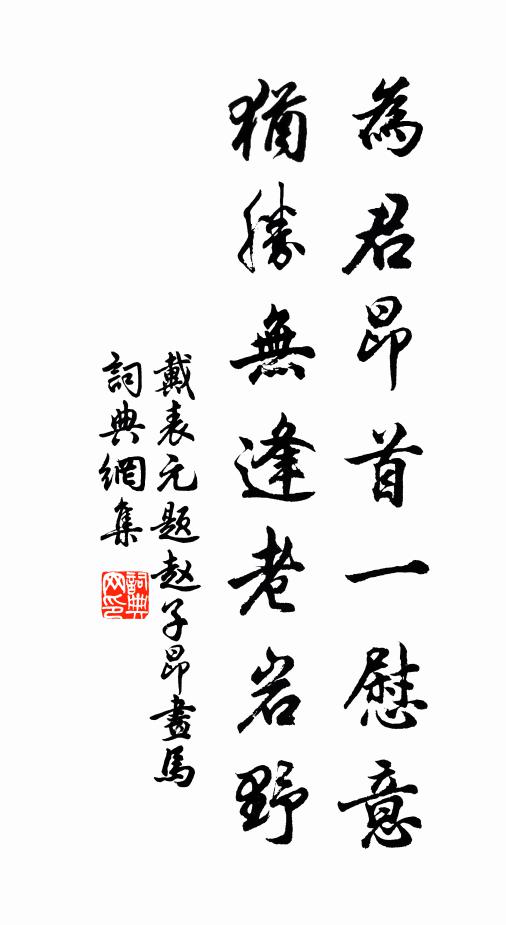 為君昂首一慰意
猶勝無逢老岩野
戴表元题赵子昂畫馬
詞典網集
詞典网印